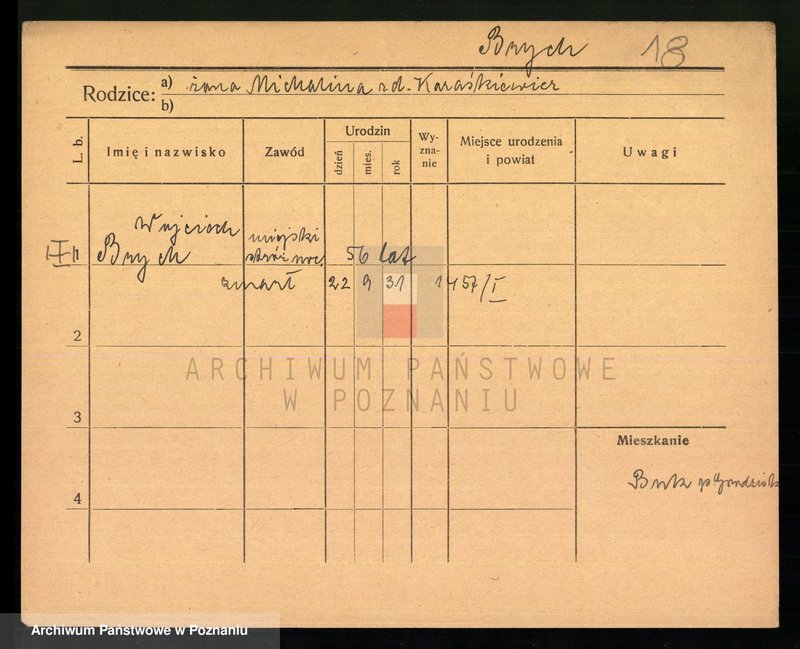 Brych 18
Rodzice: a) żona Michalina zd. Karaśkiewicz
b)
L. b. Imię i nazwisko Zawód Urodzin dzień mies. rok Wyznanie Miejsce urodzenia i powiat Uwagi
Wojciech miejski
Brych stróż noc. 56 lat
zmarł 22 9 31 1457/I
2
ARCHIWUM PAŃSTWOWE
W POZNANIU
3
Mieszkanie
Buk p. Grodzisk
4
Archiwum Państwowe w Poznaniu